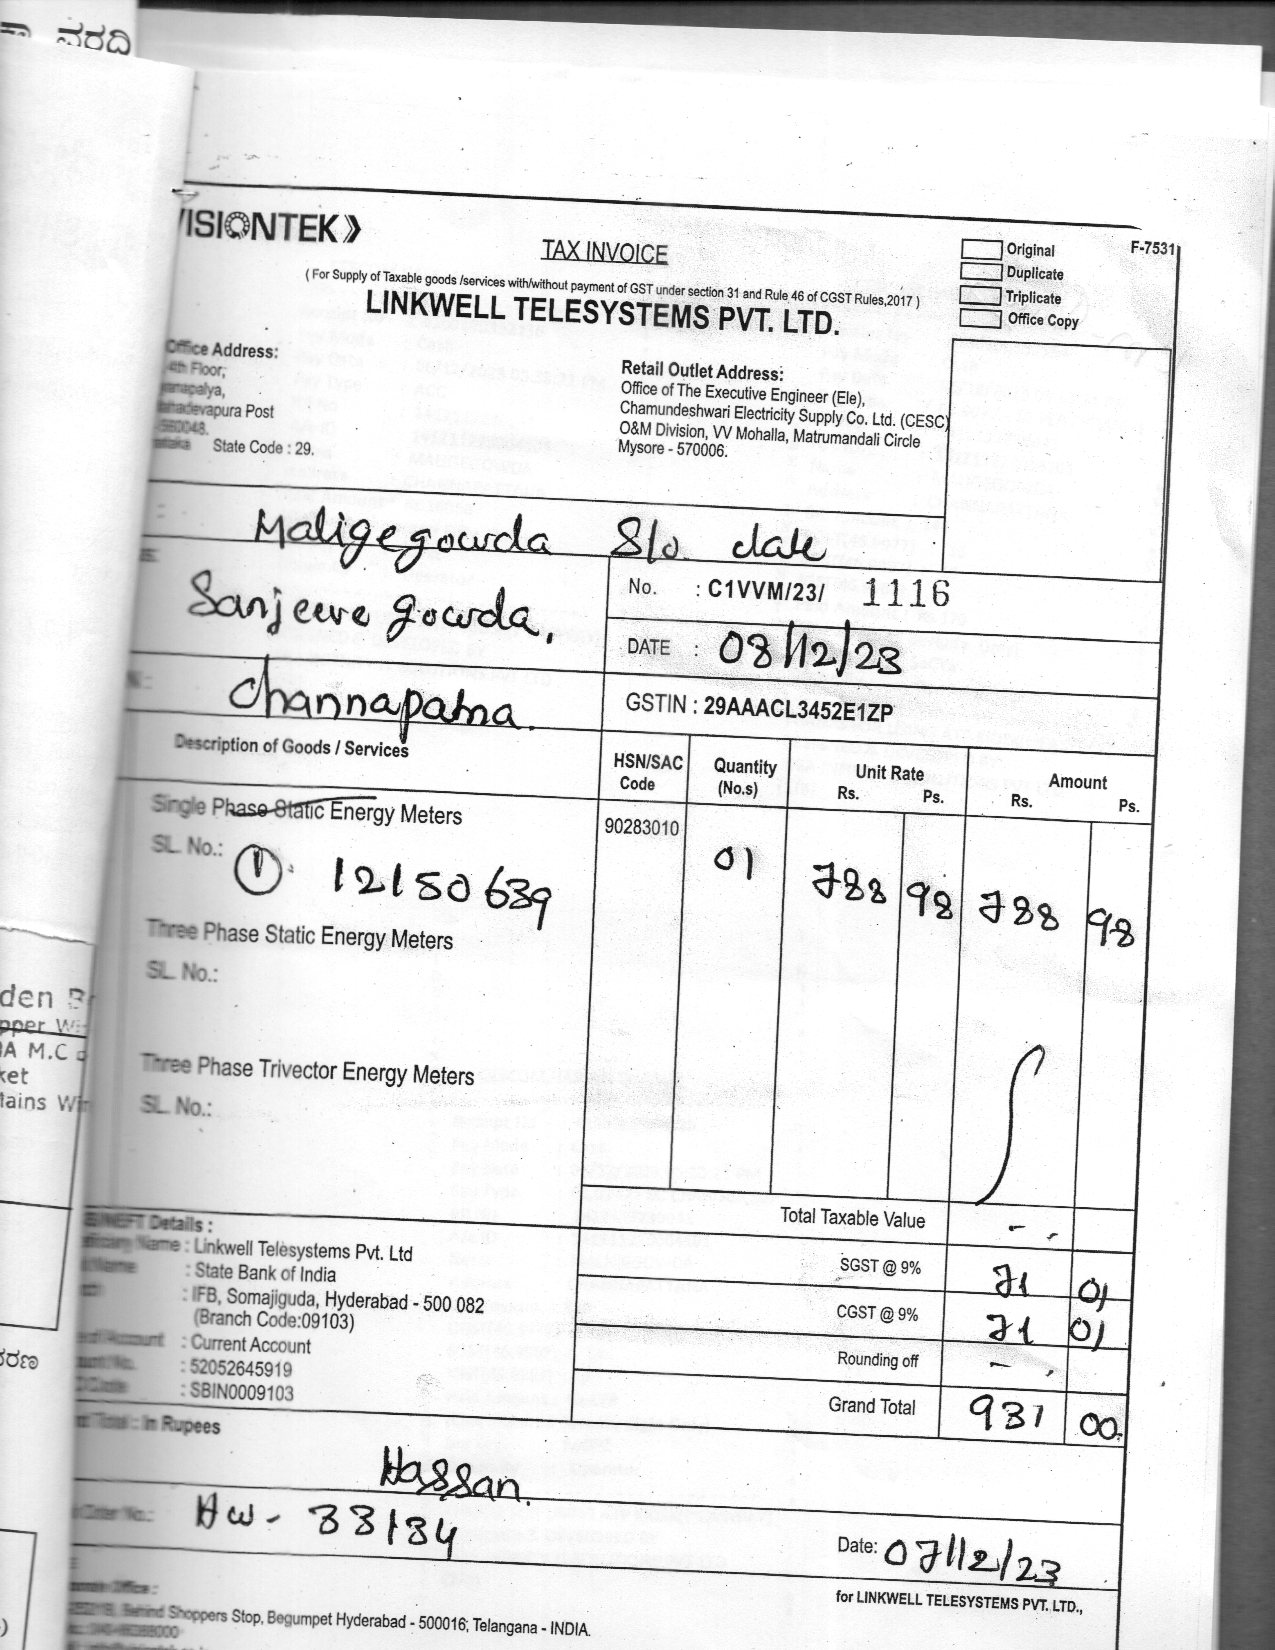 ವರದಿ
VISIONTEK
TAX INVOICE
Original
Duplicate
Triplicate
Office Copy
F-7531
( For Supply of Taxable goods /services with/without payment of GST under section 31 and Rule 46 of CGST Rules,2017 )
LINKWELL TELESYSTEMS PVT. LTD.
Office Address:
4th Floor,
Mahadevapura Post
-560048.
State Code : 29.
Retail Outlet Address:
Office of The Executive Engineer (Ele),
Chamundeshwari Electricity Supply Co. Ltd. (CESC)
O&M Division, VV Mohalla, Matrumandali Circle
Mysore - 570006.
Maligegowda S/o. date
Sanjeeve gowda,
Channapatna.
No. : C1VVM/23/ 1116
DATE : 08/12/23
GSTIN : 29AAACL3452E1ZP
Description of Goods / Services
HSN/SAC Code
Quantity (No.s)
Unit Rate Rs. Ps.
Amount Rs. Ps.
Single Phase Static Energy Meters
90283010 01 788 98 788 98
SL. No.: 1. 12150639
Three Phase Static Energy Meters
SL. No.:
Three Phase Trivector Energy Meters
SL. No.:
Total Taxable Value - -
SGST @ 9% 71 01
CGST @ 9% 71 01
Rounding off - -
Grand Total 931 00.
NEFT Details :
Name : Linkwell Telesystems Pvt. Ltd
Name : State Bank of India
: IFB, Somajiguda, Hyderabad - 500 082
(Branch Code:09103)
Account : Current Account
: 52052645919
Code : SBIN0009103
Total : In Rupees
Hassan.
HW - 33134
Date: 07/12/23
for LINKWELL TELESYSTEMS PVT. LTD.,
Office :
Behind Shoppers Stop, Begumpet Hyderabad - 500016, Telangana - INDIA.
den
pper
M.C
ket